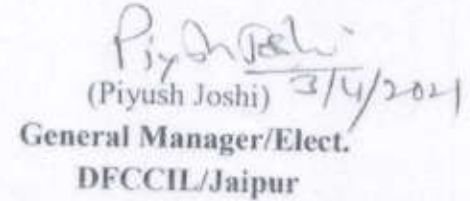 Piyush Joshi
(Piyush Joshi) 3/4/2021
General Manager/Elect.
DFCCIL/Jaipur